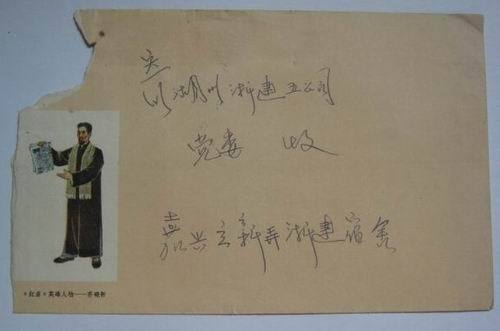 湖州浙建五公司
党委 收
嘉兴立新弄浙建宿舍
《红岩》英雄人物——齐晓轩